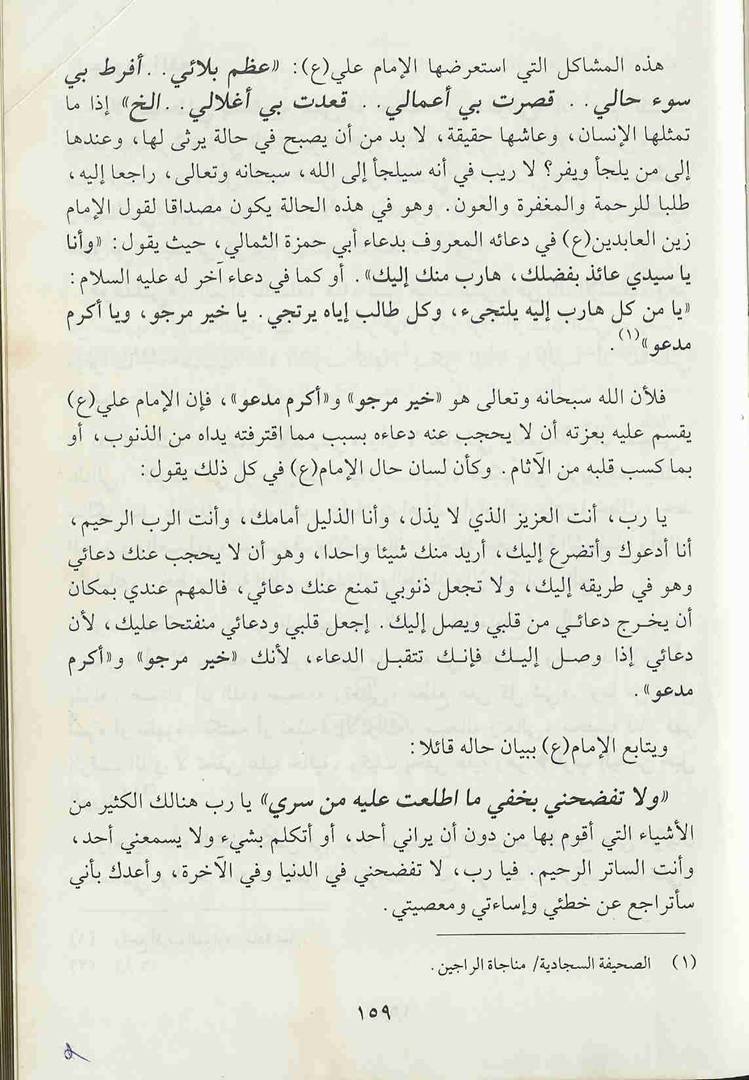 هذه المشاكل التي استعرضها الإمام علي(ع): «عظم بلائي. . أفرط بي
سوء حالي. . قصرت بي أعمالي. . قعدت بي أغلالي. . الخ» إذا ما
تمثلها الإنسان، وعاشها حقيقة، لا بد من أن يصبح في حالة يرثى لها، وعندها
إلى من يلجأ ويفر؟ لا ريب في أنه سيلجأ إلى الله، سبحانه وتعالى، راجعا إليه،
طلبا للرحمة والمغفرة والعون. وهو في هذه الحالة يكون مصداقا لقول الإمام
زين العابدين(ع) في دعائه المعروف بدعاء أبي حمزة الثمالي، حيث يقول: «وأنا
يا سيدي عائذ بفضلك، هارب منك إليك». أو كما في دعاء آخر له عليه السلام:
«يا من كل هارب إليه يلتجىء، وكل طالب إياه يرتجي. يا خير مرجو، ويا أكرم
مدعو»(١).
فلأن الله سبحانه وتعالى هو «خير مرجو» و«أكرم مدعو»، فإن الإمام علي(ع)
يقسم عليه بعزته أن لا يحجب عنه دعاءه بسبب مما اقترفته يداه من الذنوب، أو
بما كسب قلبه من الآثام. وكأن لسان حال الإمام(ع) في كل ذلك يقول:
يا رب، أنت العزيز الذي لا يذل، وأنا الذليل أمامك، وأنت الرب الرحيم،
أنا أدعوك وأتضرع إليك، أريد منك شيئا واحدا، وهو أن لا يحجب عنك دعائي
وهو في طريقه إليك، ولا تجعل ذنوبي تمنع عنك دعائي، فالمهم عندي بمكان
أن يخرج دعائي من قلبي ويصل إليك. إجعل قلبي ودعائي منفتحا عليك، لأن
دعائي إذا وصل إليك فإنك تتقبل الدعاء، لأنك «خير مرجو» و«أكرم
مدعو».
ويتابع الإمام(ع) ببيان حاله قائلا:
«ولا تفضحني بخفي ما اطلعت عليه من سري» يا رب هنالك الكثير من
الأشياء التي أقوم بها من دون أن يراني أحد، أو أتكلم بشيء ولا يسمعني أحد،
وأنت الساتر الرحيم. فيا رب، لا تفضحني في الدنيا وفي الآخرة، وأعدك بأني
سأتراجع عن خطئي وإساءتي ومعصيتي.
(١) الصحيفة السجادية/ مناجاة الراجين.
١٥٩